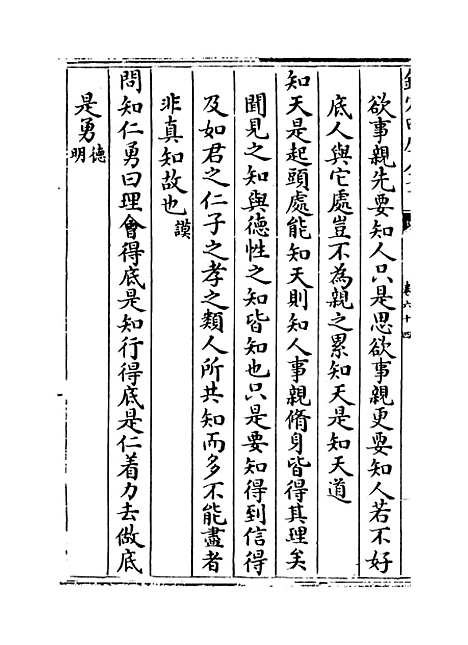 欲事親先要知人只是思欲事親更要知人若不好
底人與它處豈不為親之累知天是知天道
知天是起頭處能知天則知人事親脩身皆得其理矣
聞見之知與德性之知皆知也只是要知得到信得
及如君之仁子之孝之類人所共知而多不能盡者
非真知故也謨
問知仁勇曰理會得底是知行得底是仁着力去做底
是勇德明
卷六十四